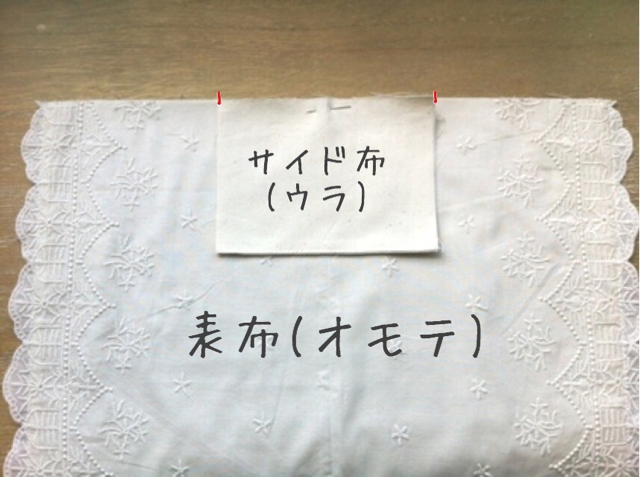 サイド布
(ウラ)
表布(オモテ)